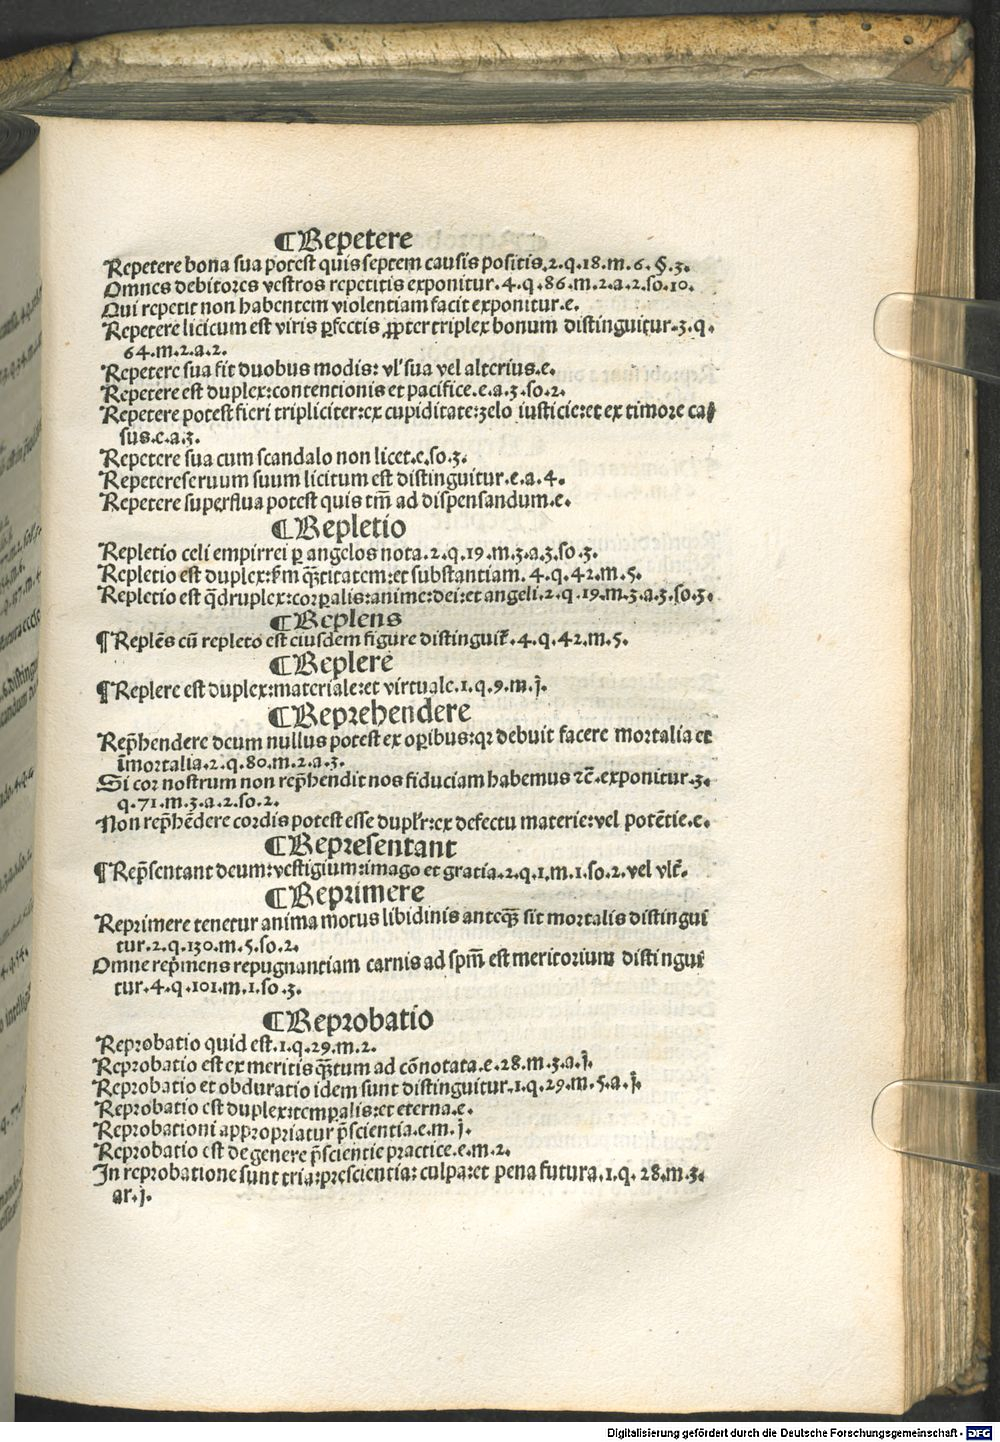 ¶Repetere
Repetere bona sua potest quis septem causis positis.2.q.18.m.6.§.3.
Omnes debitores vestros repetitis exponitur.4.q.86.m.2.a.2.so.10.
Qui repetit non habentem violentiam facit exponitur.e.
Repetere licicum est viris ꝑfectis ꝓpter triplex bonum distinguitur.3.q.
64.m.2.a.2.
Repetere sua fit duobus modis: vl' sua vel alterius.e.
Repetere est duplex:contentionis et pacifice.e.a.3.so.2.
Repetere potest fieri tripliciter:ex cupiditate:zelo iusticie:et ex timore ca⸗
sus.e.a.3.
Repetere sua cum scandalo non licet.e.so.3.
Repetereseruum suum licitum est distinguitur.e.a.4.
Repetere superflua potest quis tm̄ ad dispensandum.e.
¶Repletio
Repletio celi empirrei ꝑ angelos nota.2.q.19.m.3.a.3.so.3.
Repletio est duplex:ẜm qȝ̄titatem:et substantiam.4.q.42.m.5.
Repletio est q̄druplex:corꝑalis:anime:dei:et angeli.2.q.19.m.3.a.3.so.3.
¶Replens
¶Replēs cū repleto est eiusdem figure distinguit̄.4.q.42.m.5.
¶Replere
¶Replere est duplex:materiale:et virtuale.1.q.9.m.j.
¶Reprehendere
Rep̄hendere deum nullus potest ex oꝑibus:qꝛ debuit facere mortalia et
īmortalia.2.q.80.m.2.a.3.
Si cor nostrum non rep̄hendit nos fiduciam habemus ⁊c̄.exponitur.3.
q.71.m.3.a.2.so.2.
Non rep̄hēdere cordis potest esse dupl'r:ex defectu materie:vel potētie.e.
¶Representant
¶Rep̄sentant deum:vestigium:imago et gratia.2.q.1.m.1.so.2.vel vlt̄.
¶Reprimere
Reprimere tenetur anima motus libidinis anteqȝ̄ sit mortalis distingui
tur.2.q.130.m.5.so.2.
Omne rep̍mens repugnantiam carnis ad spm̄ est meritorium distingui
tur.4.q.101.m.1.so.3.
¶Reprobatio
Reprobatio quid est.1.q.29.m.2.
Reprobatio est ex meritis qȝ̄tum ad cōnotata.e.28.m.3.a.j.
Reprobatio et obduratio idem sunt distinguitur.1.q.29.m.5.a.j.
Reprobatio est duplex:temꝑalis:et eterna.e.
Reprobationi appropriatur p̄scientia.e.m.j.
Reprobatio est de genere p̄scientie practice.e.m.2.
In reprobatione sunt tria:prescientia:culpa:et pena futura.1.q.28.m.3.
ar.j.
Digitalisierung gefördert durch die Deutsche Forschungsgemeinschaft - DFG